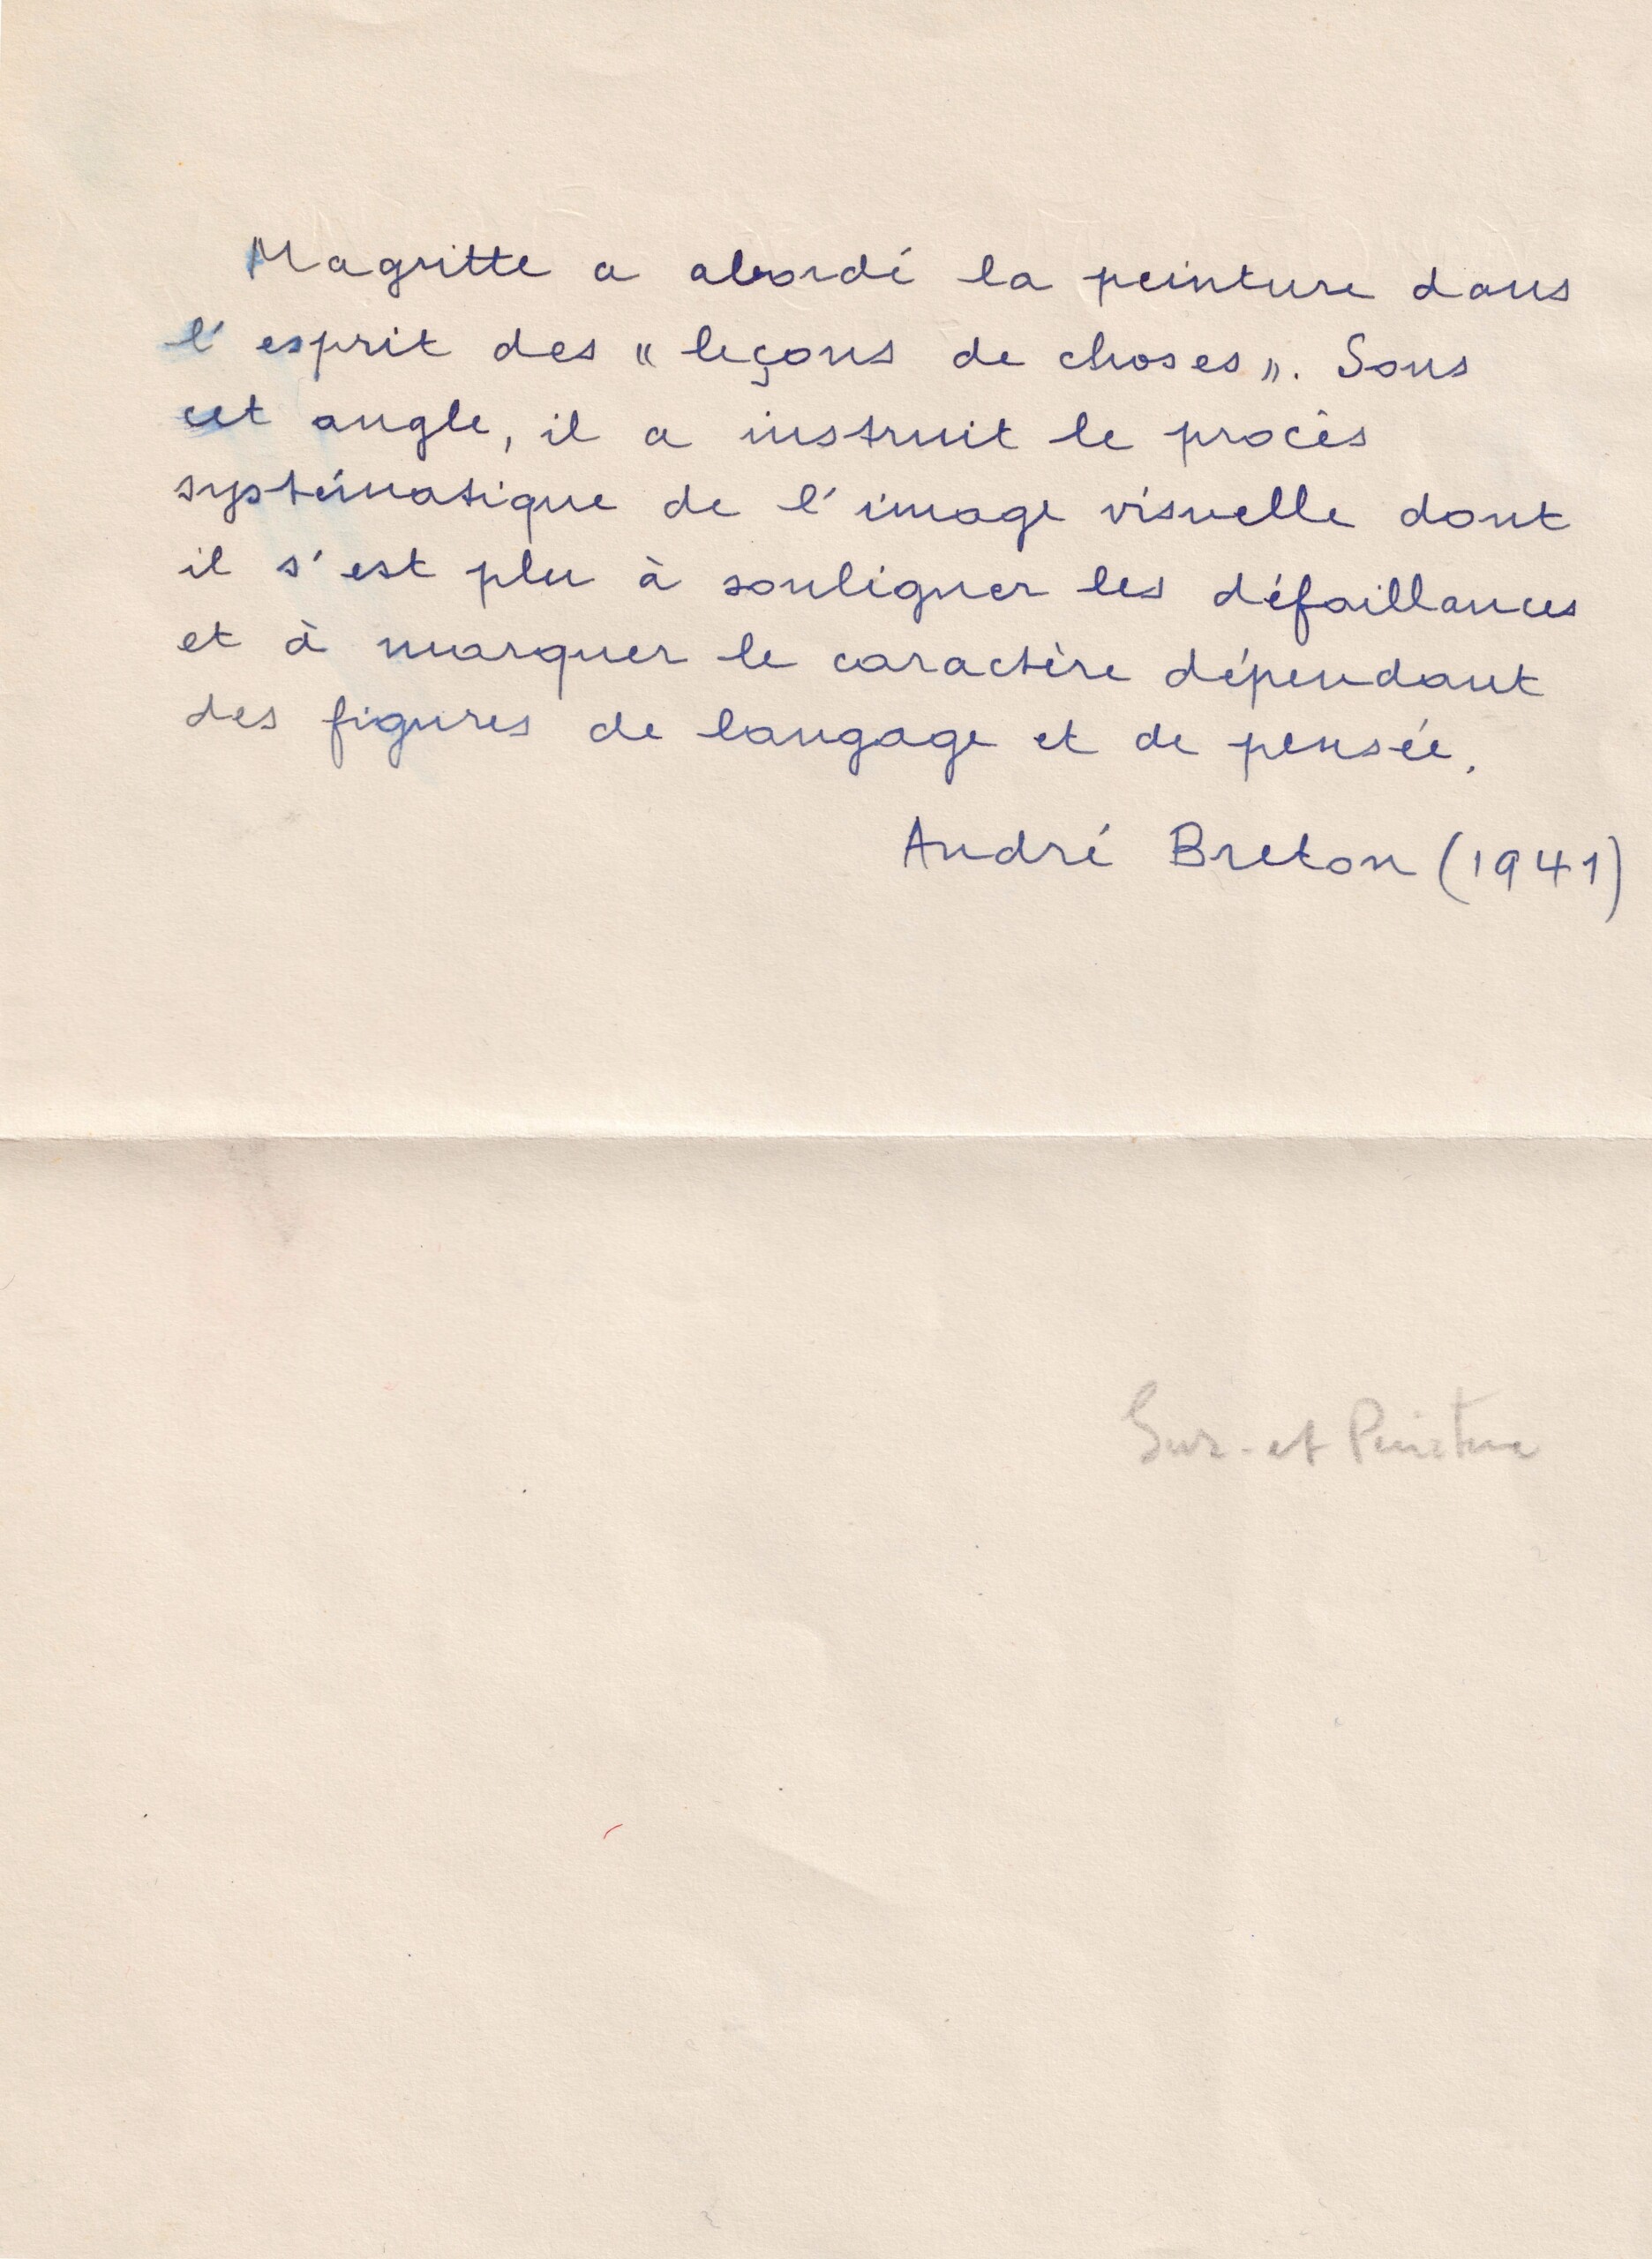 Magritte a abordé la peinture dans
l'esprit des « leçons de choses ». Sous
cet angle, il a instruit le procès
systématique de l'image visuelle dont
il s'est plu à souligner les défaillances
et à marquer le caractère dépendant
des figures de langage et de pensée.
André Breton (1941)
Sur- et Peinture